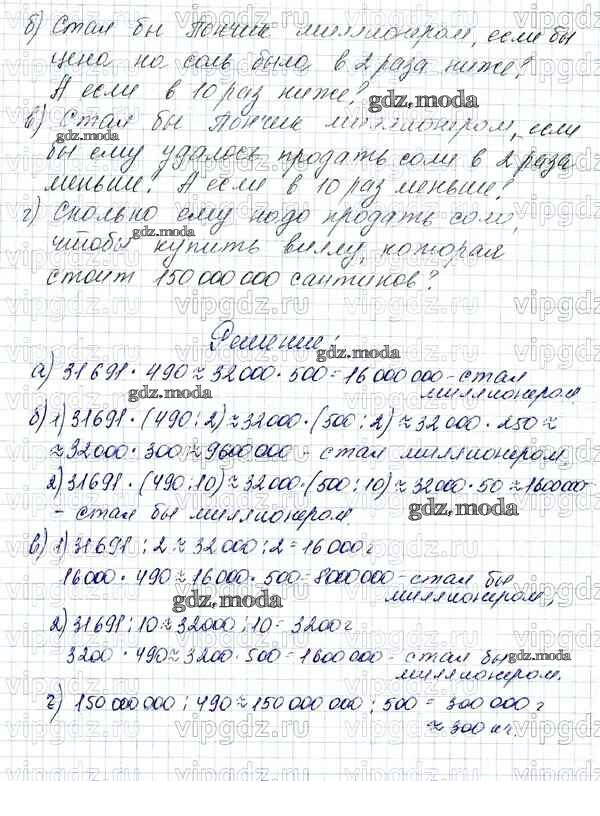 б) Стал бы Пончик миллионером, если бы
цена на соль была в 2 раза ниже?
А если в 10 раз ниже?
в) Стал бы Пончик миллионером, если
бы ему удалось продать соли в 2 раза
меньше? А если в 10 раз меньше?
г) Сколько ему надо продать соли,
чтобы купить виллу, которая
стоит 150 000 000 сантиков?
Решение:
а) 31691 · 490 ≈ 32000 · 500 = 16 000 000 - стал
миллионером.
б) 1) 31691 · (490 : 2) ≈ 32000 · (500 : 2) ≈ 32000 · 250 ≈
≈ 32000 · 300 ≈ 9600000 - стал миллионером,
2) 31691 · (490 : 10) ≈ 32000 · (500 : 10) ≈ 32000 · 50 ≈ 1600000 -
- стал бы миллионером
в) 1) 31691 : 2 ≈ 32000 : 2 = 16000 г
16000 · 490 ≈ 16000 · 500 = 8000000 - стал бы
миллионером,
2) 31691 : 10 ≈ 32000 : 10 = 3200 г
3200 · 490 ≈ 3200 · 500 = 1600000 - стал бы
миллионером.
г) 150 000 000 : 490 ≈ 150 000 000 : 500 = 300 000 г
≈ 300 кг.
gdz.moda
vipgdz.ru